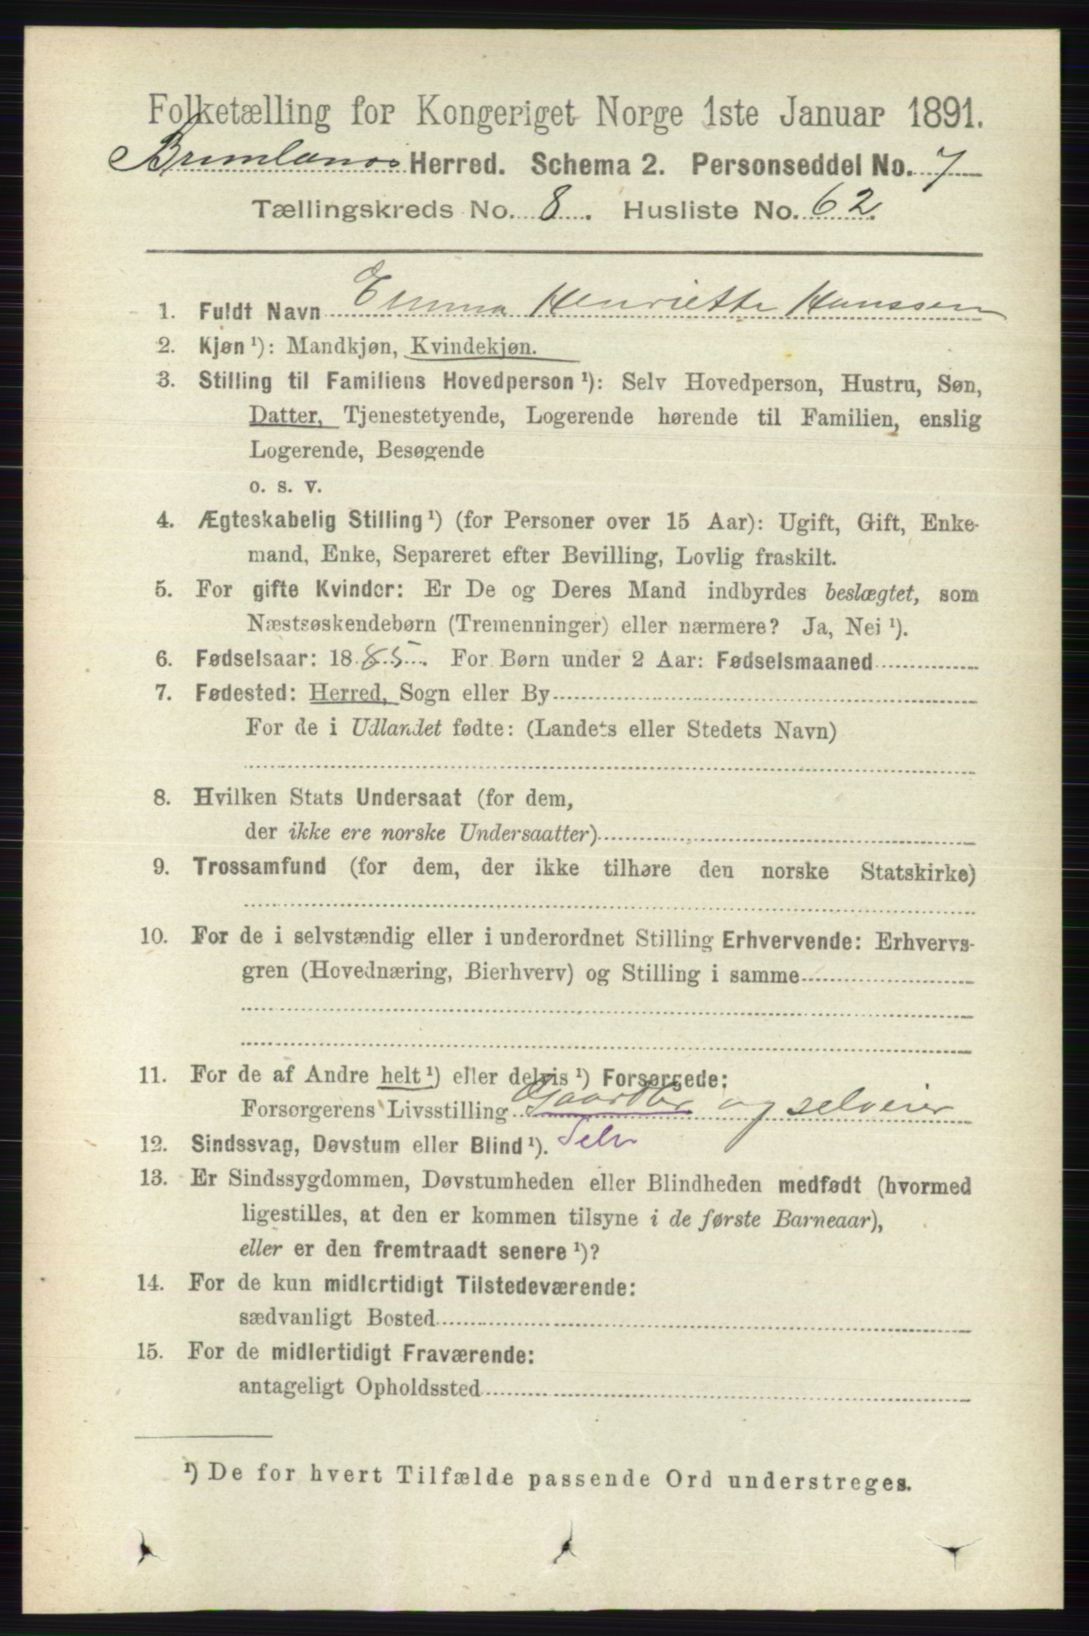 Folketælling for Kongeriget Norge 1ste Januar 1891.
Brunlanæs Herred. Schema 2. Personseddel No. 7
Tællingskreds No. 8. Husliste No. 62.
1. Fuldt Navn Emma Henriette Hanssen
2. Kjøn ¹): Mandkjøn, Kvindekjøn.
3. Stilling til Familiens Hovedperson ¹): Selv Hovedperson, Hustru, Søn,
Datter, Tjenestetyende, Logerende hørende til Familien, enslig
Logerende, Besøgende
o. s. v.
4. Ægteskabelig Stilling ¹) (for Personer over 15 Aar): Ugift, Gift, Enke-
mand, Enke, Separeret efter Bevilling, Lovlig fraskilt.
5. For gifte Kvinder: Er De og Deres Mand indbyrdes beslægtet, som
Næstsøskendebørn (Tremenninger) eller nærmere? Ja, Nei ¹).
6. Fødselsaar: 1885. For Børn under 2 Aar: Fødselsmaaned
7. Fødested: Herred, Sogn eller By
For de i Udlandet fødte: (Landets eller Stedets Navn)
8. Hvilken Stats Undersaat (for dem,
der ikke ere norske Undersaatter)
9. Trossamfund (for dem, der ikke tilhøre den norske Statskirke)
10. For de i selvstændig eller i underordnet Stilling Erhvervende: Erhvervs-
gren (Hovednæring, Bierhverv) og Stilling i samme
11. For de af Andre helt ¹) eller delvis ¹) Forsørgede:
Forsørgerens Livsstilling Gaardbr og selveier
12. Sindssvag, Døvstum eller Blind ¹). Selv
13. Er Sindssygdommen, Døvstumheden eller Blindheden medfødt (hvormed
ligestilles, at den er kommen tilsyne i de første Barneaar),
eller er den fremtraadt senere ¹)?
14. For de kun midlertidigt Tilstedeværende:
sædvanligt Bosted
15. For de midlertidigt Fraværende:
antageligt Opholdssted
¹) De for hvert Tilfælde passende Ord understreges.